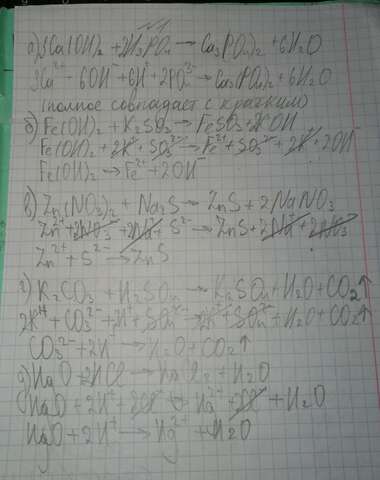 №1
а) 3Ca(OH)₂ + 2H₃PO₄ → Ca₃(PO₄)₂ + 6H₂O
3Ca²⁺ + 6OH⁻ + 6H⁺ + 2PO₄³⁻ → Ca₃(PO₄)₂ + 6H₂O
(полное совпадает с кратким)
б) Fe(OH)₂ + K₂SO₃ → FeSO₃ + 2KOH
Fe(OH)₂ + 2K⁺ + SO₃²⁻ → Fe²⁺ + SO₃²⁻ + 2K⁺ + 2OH⁻
Fe(OH)₂ → Fe²⁺ + 2OH⁻
в) Zn(NO₃)₂ + Na₂S → ZnS + 2NaNO₃
Zn²⁺ + 2NO₃⁻ + 2Na⁺ + S²⁻ → ZnS + 2Na⁺ + 2NO₃⁻
Zn²⁺ + S²⁻ → ZnS
г) K₂CO₃ + H₂SO₄ → K₂SO₄ + H₂O + CO₂↑
2K⁺ + CO₃²⁻ + 2H⁺ + SO₄²⁻ → 2K⁺ + SO₄²⁻ + H₂O + CO₂↑
CO₃²⁻ + 2H⁺ → H₂O + CO₂↑
д) HgO + 2HCl → HgCl₂ + H₂O
HgO + 2H⁺ + 2Cl⁻ → Hg²⁺ + 2Cl⁻ + H₂O
HgO + 2H⁺ → Hg²⁺ + H₂O